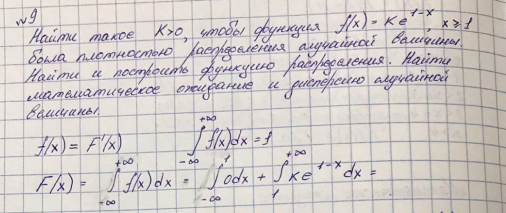 №9
Найти такое K>0, чтобы функция f(x) = Ke^{1-x}, x ≥ 1
была плотностью распределения случайной величины.
Найти и построить функцию распределения. Найти
математическое ожидание и дисперсию случайной
величины.
f(x) = F'(x)   ∫_{-∞}^{+∞} f(x)dx = 1
F(x) = ∫_{-∞}^{+∞} f(x)dx = ∫_{-∞}^{1} 0dx + ∫_{1}^{+∞} Ke^{1-x}dx =